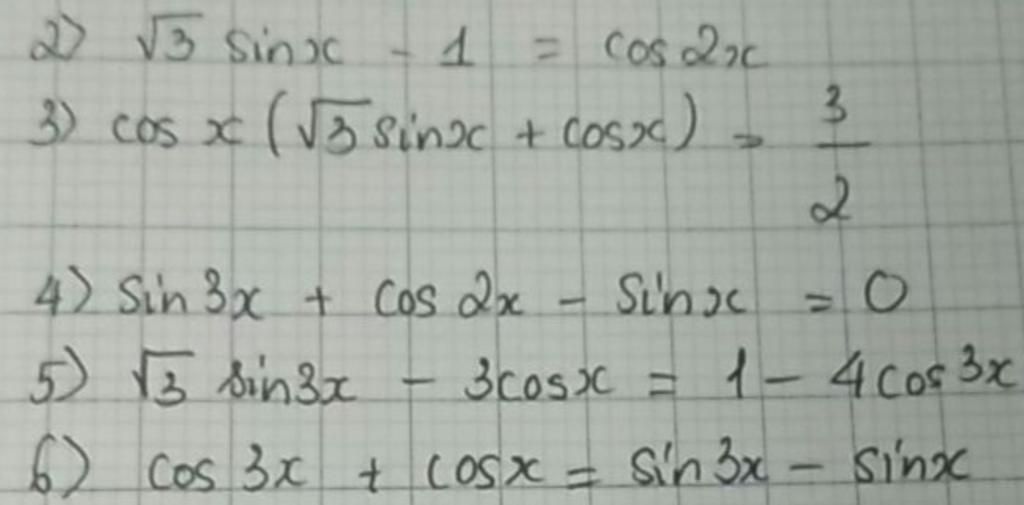 2) √3 sinx - 1 = cos2x
3) cos x (√3 sinx + cosx) = 3/2
4) Sin 3x + cos 2x - Sinx = 0
5) √3 sin3x - 3cosx = 1 - 4cos³x
6) cos 3x + cosx = sin3x - sinx